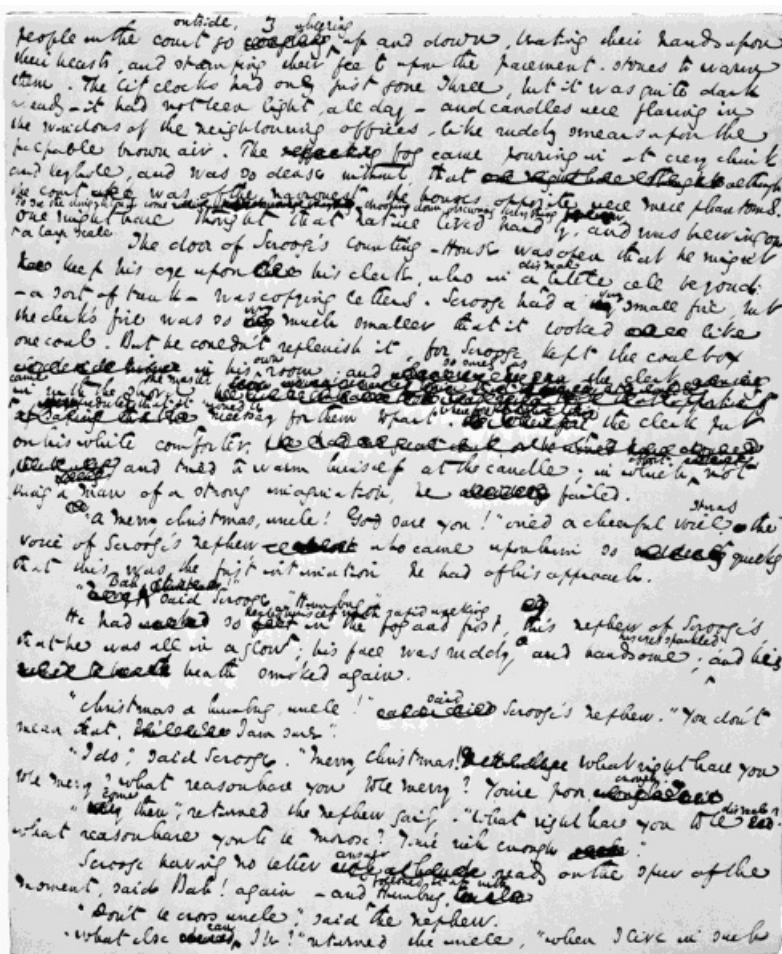 outside, wheezing
people in the court go up and down, beating their hands upon
their breasts, and stamping their feet upon the pavement-stones to warm
them. The City clocks had only just gone Three, but it was quite dark
already - it had not been light, all day - and candles were flaring in
the windows of the neighbouring offices, like ruddy smears upon the
palpable brown air. The fog came pouring in at every chink
and keyhole, and was so dense without, that although
the court was of the narrowest, the houses opposite were mere phantoms.
To see the dingy cloud come drooping down, obscuring everything
one might have thought that nature lived hard by, and was brewing on
a large scale.
The door of Scrooge's Counting-House was open that he might
keep his eye upon his clerk, who in a dismal little cell beyond
- a sort of tank - was copying letters. Scrooge had a very small fire, but
the clerk's fire was so very much smaller that it looked like
one coal. But he couldn't replenish it, for Scrooge kept the coal box
in his own room; and so surely as the clerk
came in with the shovel the master
predicted that it would be necessary for them to part. wherefore the clerk put
on his white comforter,
and tried to warm himself at the candle; in which effort, not
being a man of a strong imagination, he failed.
"A merry christmas, uncle! God save you!" cried a cheerful voice. It was the
voice of Scrooge's nephew who came upon him so quickly
that this was the first intimation he had of his approach.
"Bah!" said Scrooge "Humbug!"
He had so heated himself with rapid walking in the fog and frost, this nephew of Scrooge's,
that he was all in a glow; his face was ruddy and handsome; his eyes sparkled and his
breath smoked again.
"Christmas a humbug, uncle!" said Scrooge's nephew. "You don't
mean that, I am sure".
"I do," said Scrooge. "Merry christmas! What right have you
to be merry? what reason have you to be merry? You're poor enough."
"Come then", returned the nephew gaily. "What right have you to be dismal?
what reason have you to be morose? You're rich enough."
Scrooge having no better answer ready on the spur of the
moment, said Bah! again - and followed it up with Humbug.
"Don't be cross uncle," said the nephew.
"What else can I be!" returned the uncle, "when I live in such